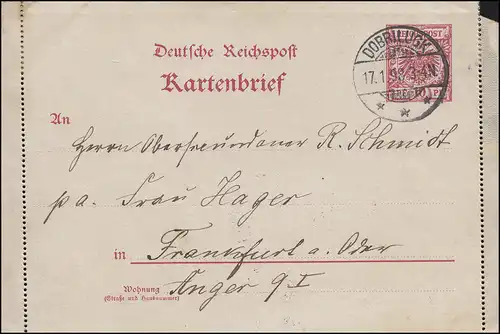 Deutsche Reichspost
Kartenbrief
REICHSPOST
DOBRILUGK
17.1.98.3-4N
An
Herrn R. Schmidt
p a. Frau Hager
in Frankfurt a. Oder
Wohnung
(Straße und Hausnummer)
Anger 9 I